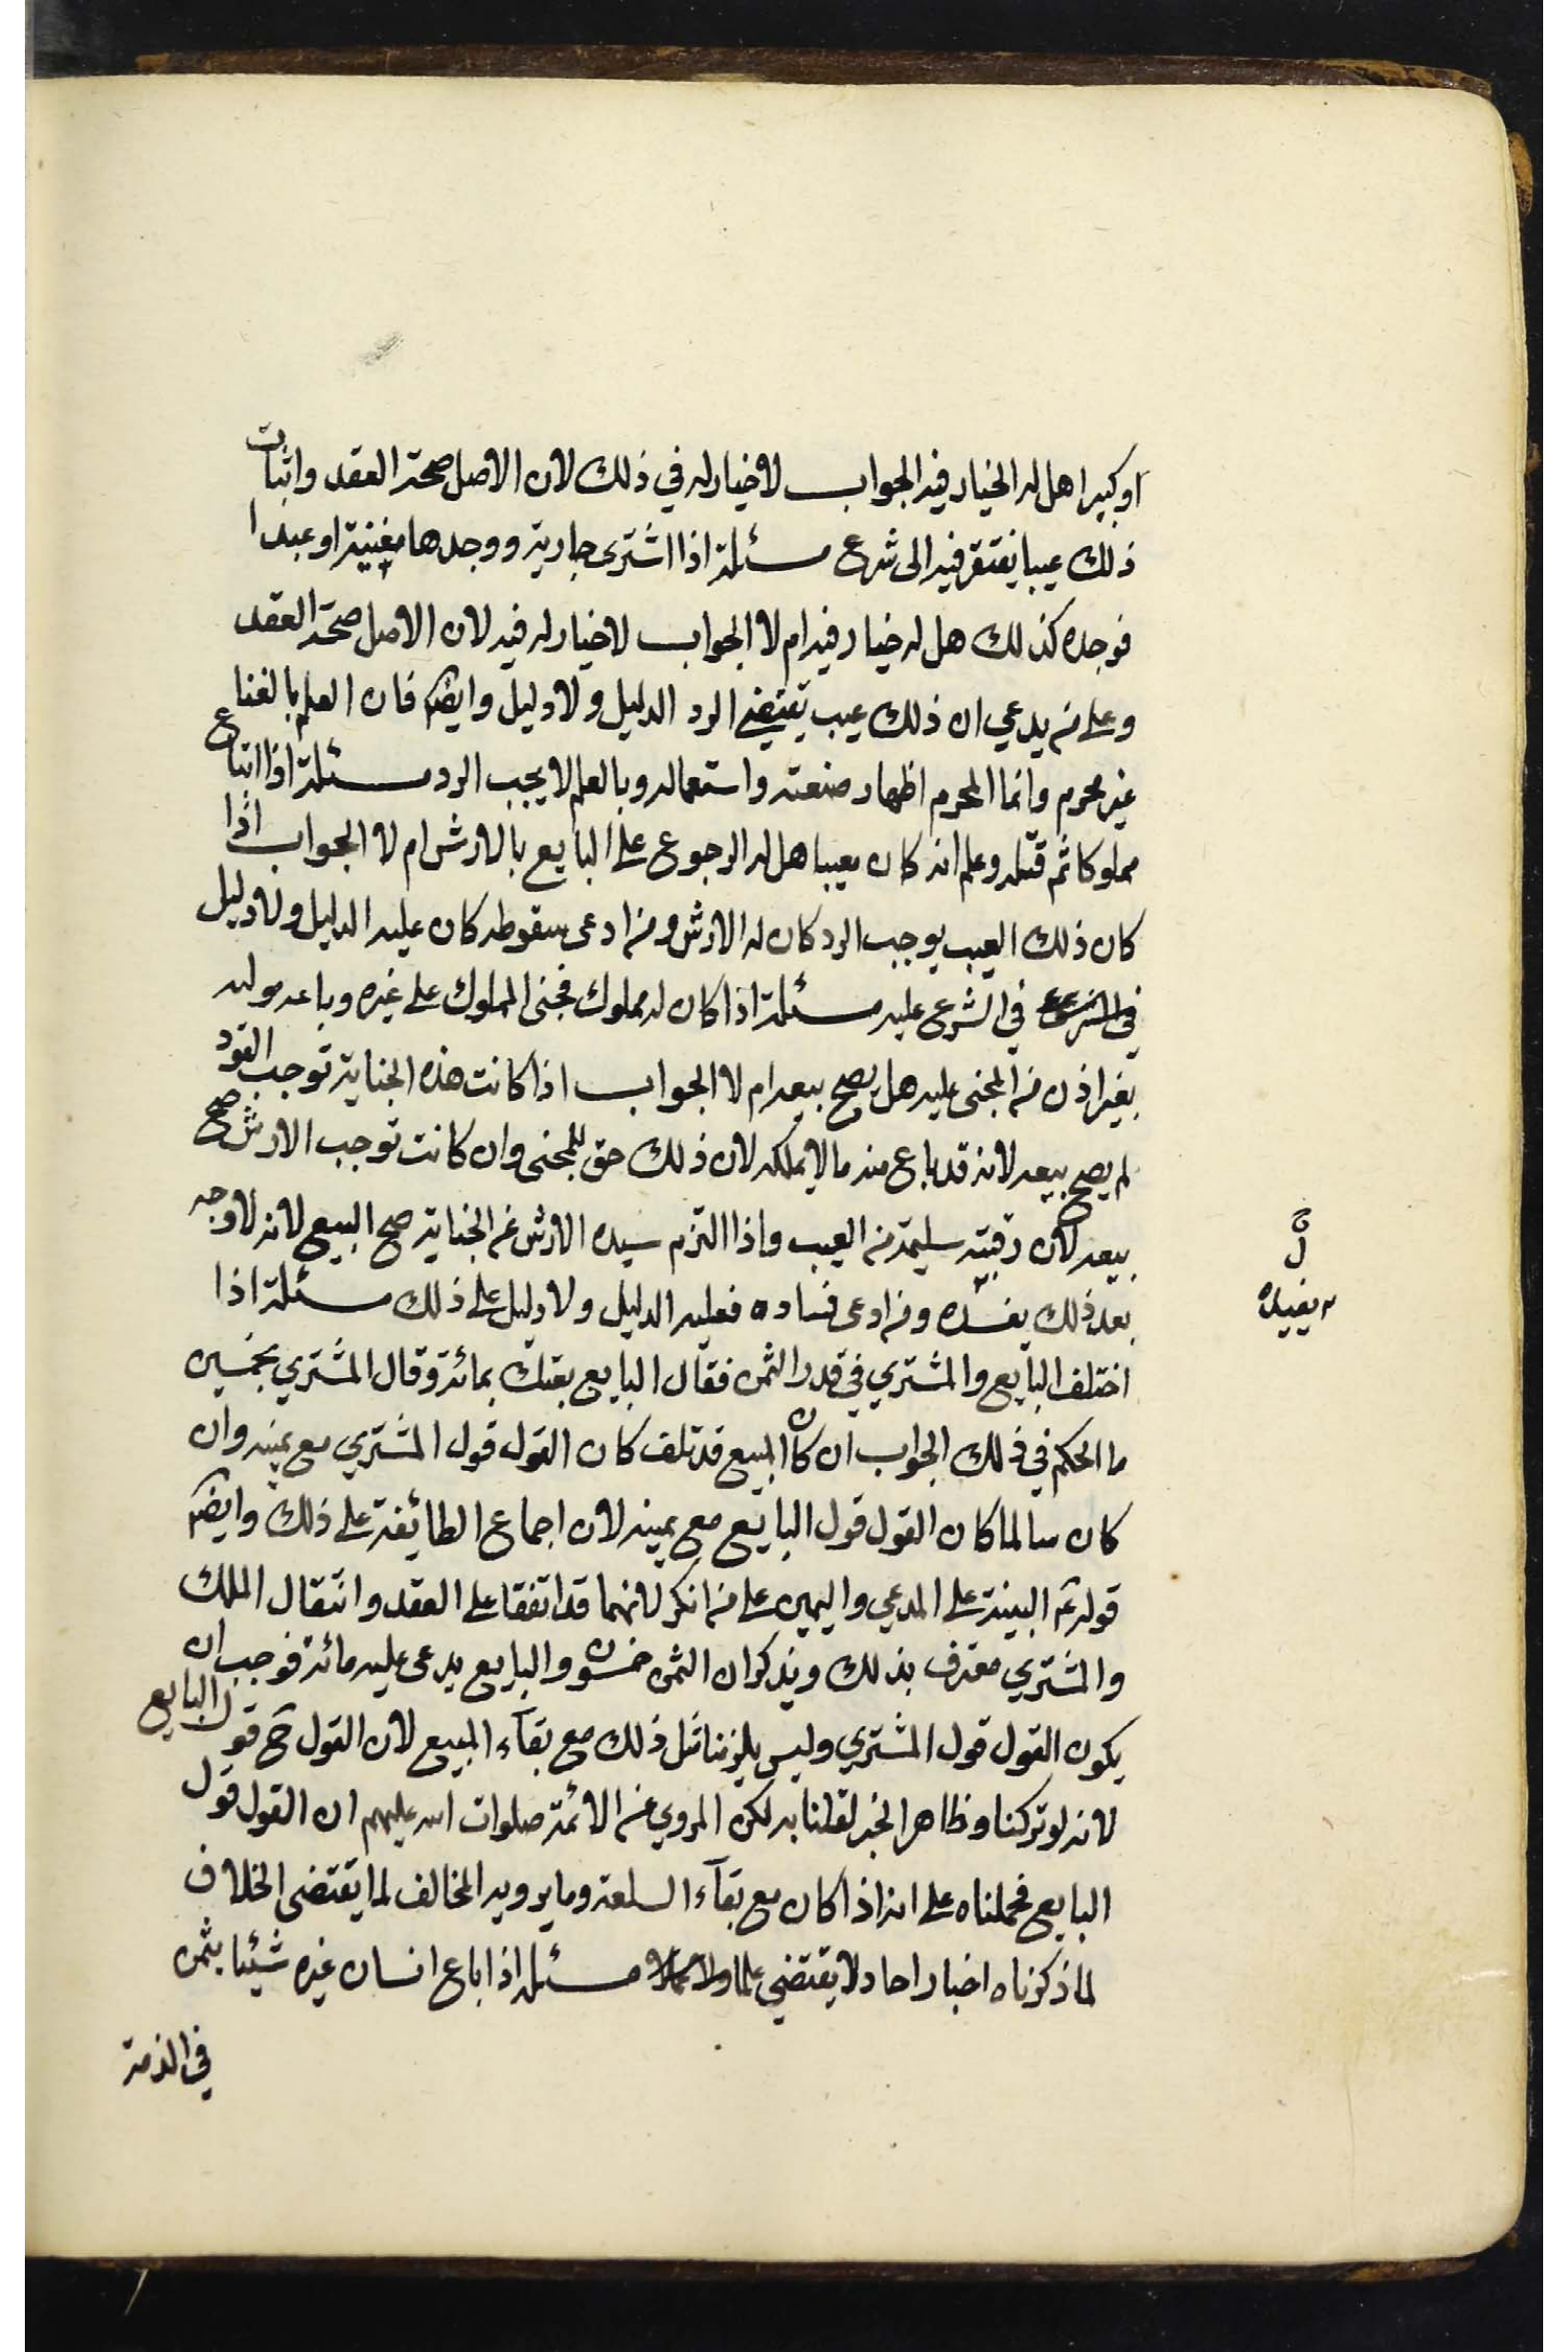 او كبيرا هل له الخيار فيه الجواب لا خيار له في ذلك لان الاصل صحة العقد واثبات
ذلك عيبا يفتقر فيه الى شرع مسئلة اذا اشترى جارية ووجدها مغنية او عبدا
فوجده كذلك هل له خيار فيه ام لا الجواب لا خيار له فيه لان الاصل صحة العقد
وعلى من يدعي ان ذلك عيب يقتضي الرد الدليل ولا دليل وايضا فان العلم بالغنا
غير محرم وانما المحرم اظهار صنعته واستعماله وبالعلم لا يجب الرد مسئلة اذا ابتاع
مملوكا ثم قتله وعلم انه كان معيبا هل له الرجوع على البايع بالارش ام لا الجواب اذا
كان ذلك العيب يوجب الرد كان له الارش ومن ادعى سقوطه كان عليه الدليل ولا دليل
في الشرع في الشرع عليه مسئلة اذا كان له مملوك فجنى المملوك على غيره وباعه موليه
بغير اذن من المجنى عليه هل يصح بيعه ام لا الجواب اذا كانت هذه الجناية توجب القود
لم يصح بيعه لانه قد باع منه ما لا يملكه لان ذلك حق للمجنى وان كانت توجب الارش صح
بيعه لان رقبته سليمة من العيب واذا التزم سيده الارش عن الجناية صح البيع لانه لا وجه
بعد ذلك يفسده ومن ادعى فساده فعليه الدليل ولا دليل على ذلك مسئلة اذا
اختلف البايع والمشتري في قدر الثمن فقال البايع بعتك بمائة وقال المشتري بخمسين
ما الحكم في ذلك الجواب ان كان المبيع قد تلف كان القول قول المشتري مع يمينه وان
كان سالما كان القول قول البايع مع يمينه لان اجماع الطائفة على ذلك وايضا
قوله ع البينة على المدعي واليمين على من انكر لانهما قد اتفقا على العقد وانتقال الملك
والمشتري معترف بذلك ويذكر ان الثمن خمسون والبايع يدعى عليه مائة فوجب ان
يكون القول قول المشتري وليس يلزمنا مثل ذلك مع بقآء المبيع لان القول ح قول البايع
لانه لو تركنا وظاهر الخبر لقلنا به لكن المروي عن الائمة صلوات الله عليهم ان القول قول
البايع فحملناه على انه اذا كان مع بقآء السلعة وما يرويه المخالف لما يقتضى الخلاف
لما ذكرناه اخبار احاد لا يقتضي علما ولا عملا مسئلة اذا باع انسان غيره شيئا بثمن
في الذمة